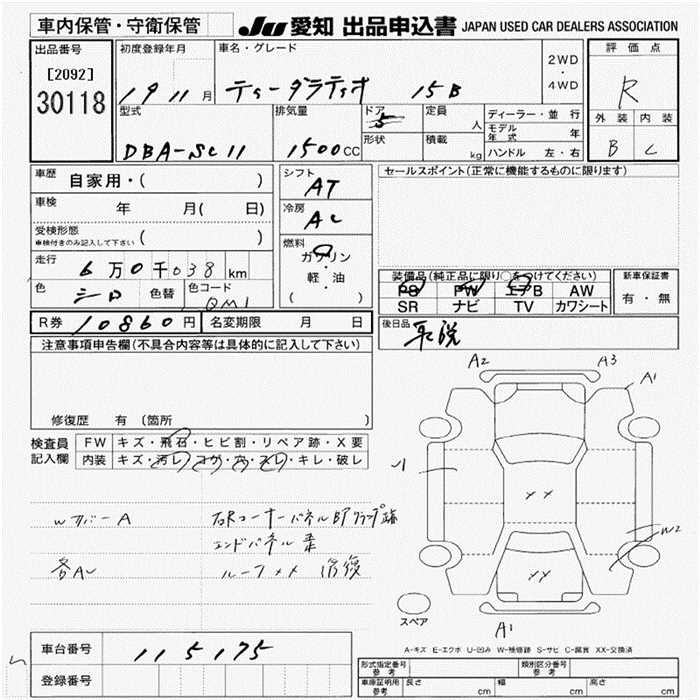 車内保管・守衛保管 JU 愛知 出品申込書 JAPAN USED CAR DEALERS ASSOCIATION
出品番号 初度登録年月 車名・グレード 評価点
[2092]
30118
19 11月 ティーダラティオ 15B
2WD
・
4WD
R
外装 内装
B C
型式 排気量 ドア 定員 ディーラー・並行
DBA-SC11 1500CC 5 人
モデル年式 年
形状 積載 kg ハンドル 左・右
車歴 自家用・( )
シフト AT
セールスポイント(正常に機能するものに限ります)
車検 年 月( 日)
冷房 AC
受検形態
車検付きのみ記入して下さい ( )
燃料 ガソリン
・
軽・油
( )
走行 6万0千038km
装備品(純正品に限り○をつけてください) 新車保証書
PS PW エアB AW
SR ナビ TV カワシート
有・無
色 シロ 色替 色コード QM1
R券 10860円 名変期限 月 日
後日品
注意事項申告欄(不具合内容等は具体的に記入して下さい)
修復歴 有 (箇所
A2 A3
A1
検査員 FW キズ・飛石・ヒビ割・リペア跡・X要
記入欄 内装 キズ・汚レ・コゲ・穴・スレ・キレ・破レ
Wカバー A 右Rコーナーパネル BFクランプ跡
エンドパネル 
各AU ルーフ×× 修復
××
××
W2
A1
スペア
A-キズ E-エクボ U-凹み W-補修跡 S-サビ C-腐蝕 XX-交換済
車台番号 115175
登録番号
形式指定番号 参考 類別区分番号 参考
車庫証明用 参考 長さ cm 幅 cm 高さ cm